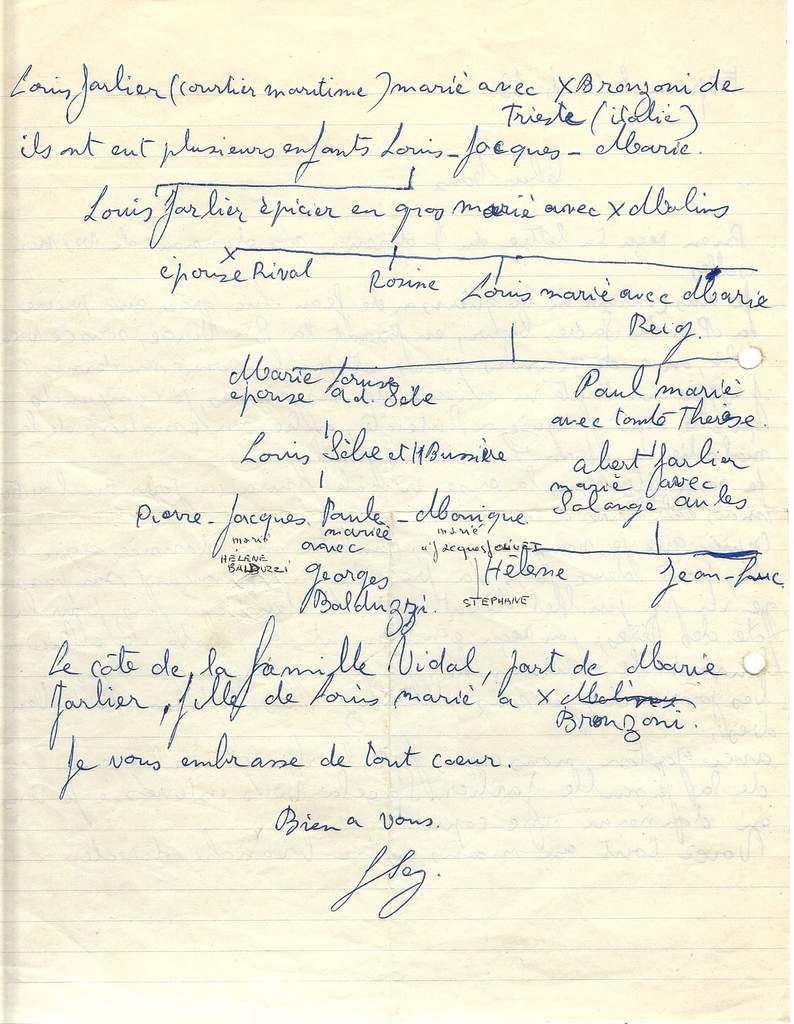 Louis Jarlier (courtier maritime) marié avec X Bronzoni de
Trieste (italie)
ils ont eut plusieurs enfants Louis - Jacques - Marie.
Louis Jarlier épicier en gros marié avec X Malins
X
épouse Rival Rosine Louis marié avec Marie
Reig.
Marie Louise Paul marié
épouse ad. Sèbe avec tomto Therèse.
Louis Sèbe et H Bussière abert Jarlier
marié avec
Pierre - Jacques. Paule - Monique Solange aules
marié mariée marié
avec à Jacques
HÉLÈNE
BALDUZZI Georges Hélène Jean-Luc
Balduzzi. STEPHANE
Le côte de la famille Vidal, part de Marie
Jarlier, fille de Louis marié a X Malins
Bronzoni.
Je vous embrasse de tout coeur.
Bien a vous.